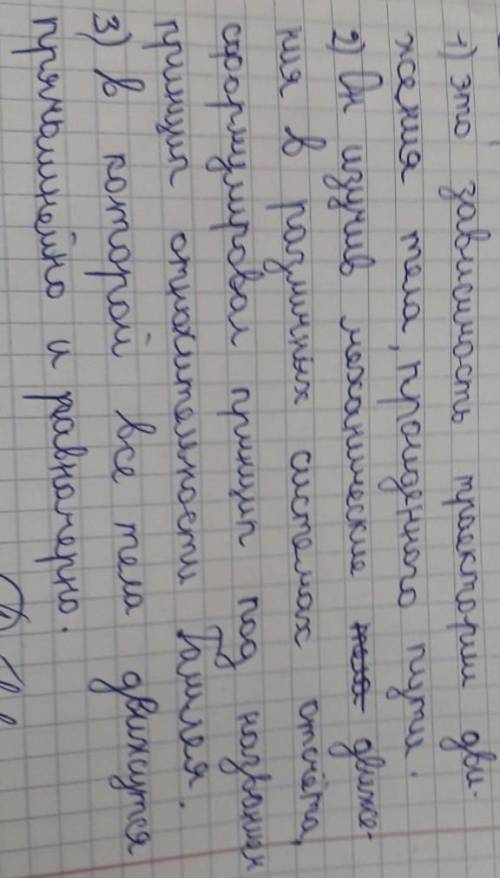 1) это зависимость траектории дви-
жения тела, пройденного пути.
2) Он изучив механические движе-
ния в различных системах отсчёта,
сформулировал принцип под названием
принцип относительности Галилея.
3) в котором все тела движутся
прямолинейно и равномерно.